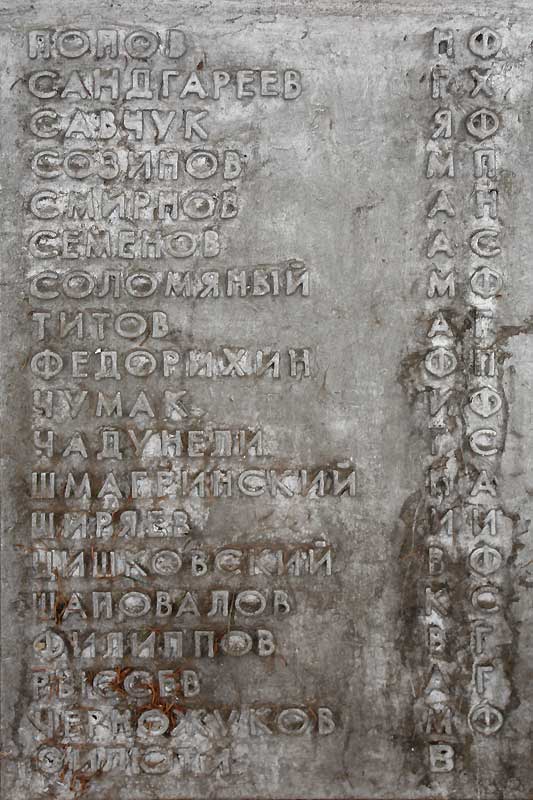 ПОПОВ Н Ф
САНДГАРЕЕВ Г Х
САВЧУК Я Ф
СОЗИНОВ М П
СМИРНОВ А Н
СЕМЕНОВ А С
СОЛОМЯНЫЙ М Ф
ТИТОВ А Г
ФЕДОРИХИН Ф П
ЧУМАК И Ф
ЧАДУНЕЛИ Г С
ШМАГРИНСКИЙ П А
ШИРЯЕВ И И
ЦИШКОВСКИЙ В Ф
ШАПОВАЛОВ К С
ФИЛИППОВ В Г
РЫССЕВ А Г
ЧЕРНОЖУКОВ М Ф
В